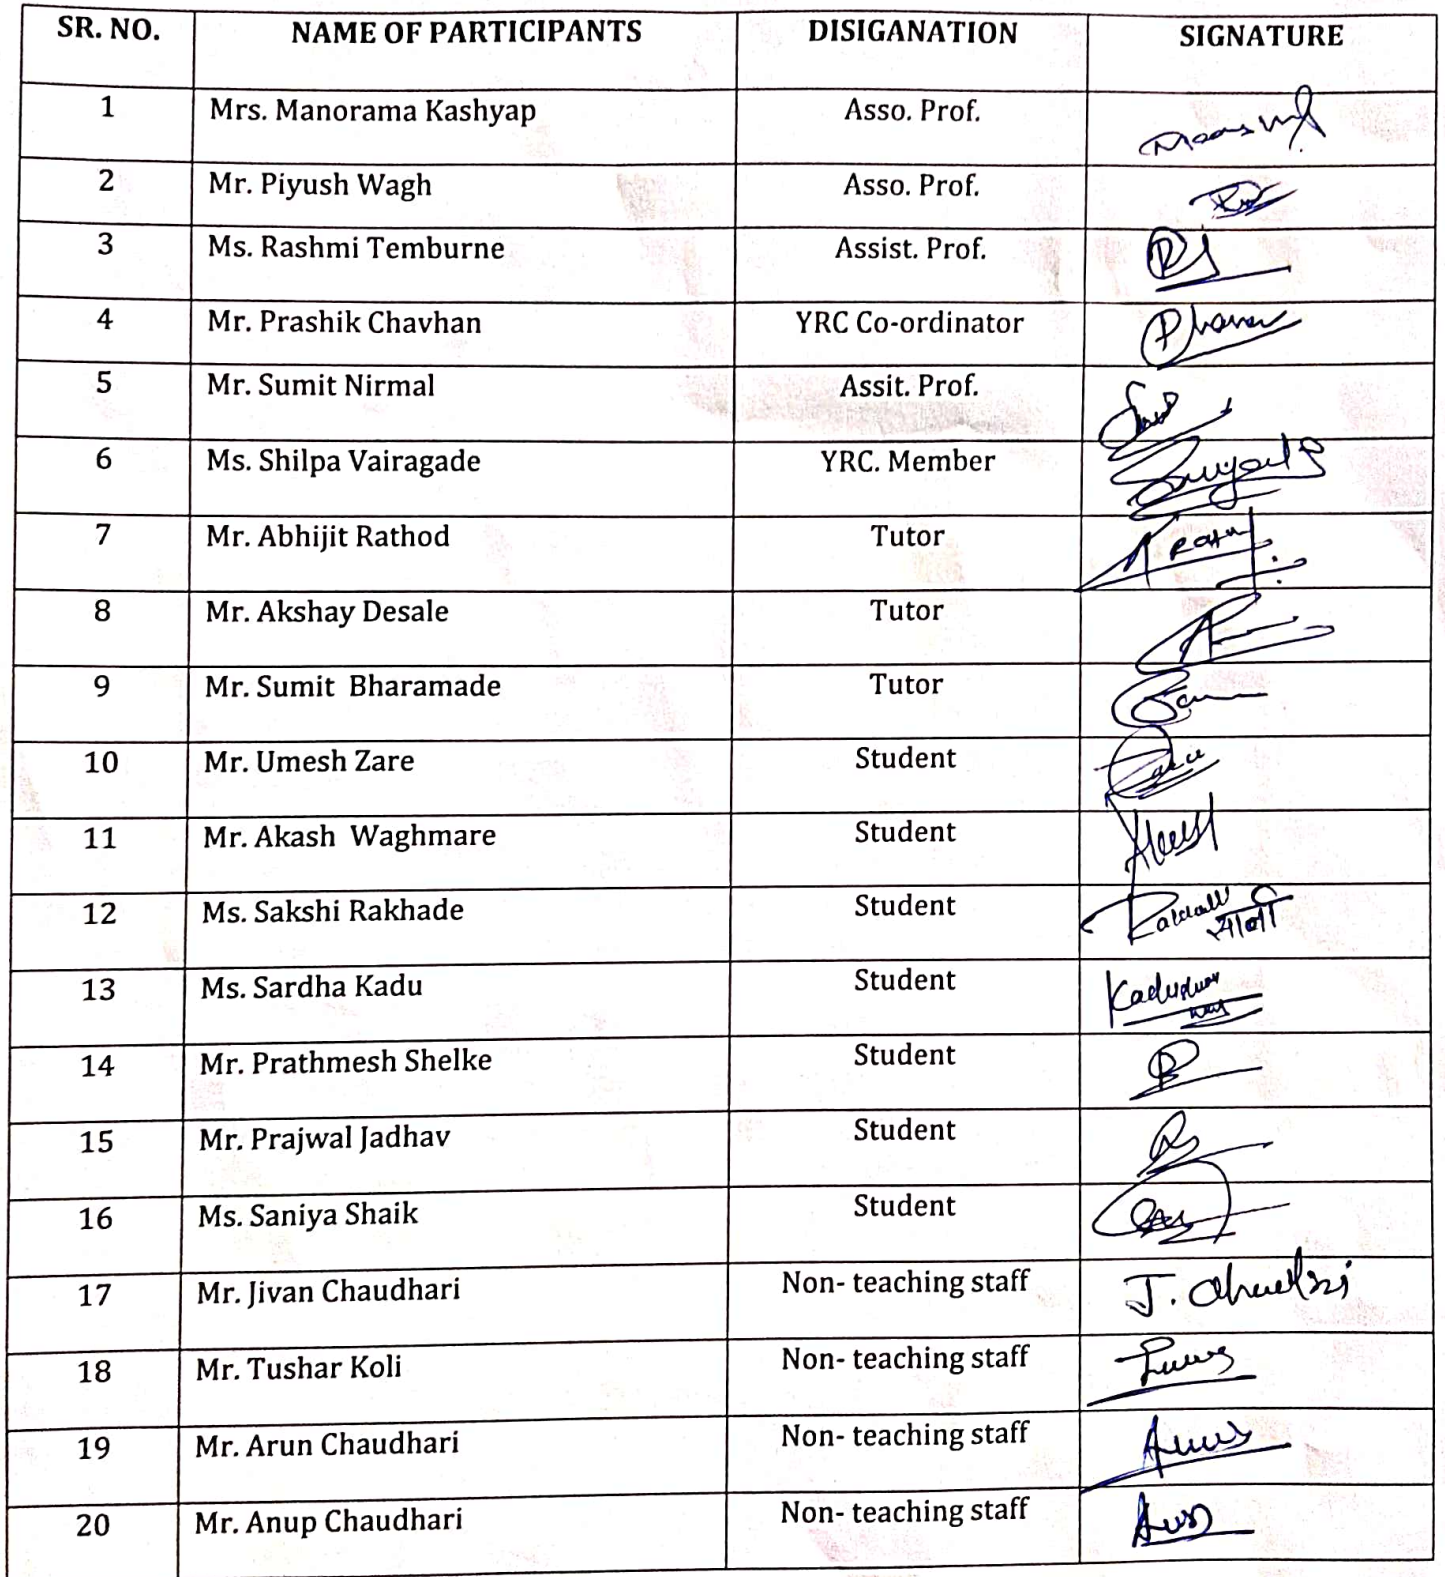 SR. NO. NAME OF PARTICIPANTS DISIGANATION SIGNATURE
1 Mrs. Manorama Kashyap Asso. Prof.
2 Mr. Piyush Wagh Asso. Prof.
3 Ms. Rashmi Temburne Assist. Prof.
4 Mr. Prashik Chavhan YRC Co-ordinator
5 Mr. Sumit Nirmal Assit. Prof.
6 Ms. Shilpa Vairagade YRC. Member
7 Mr. Abhijit Rathod Tutor
8 Mr. Akshay Desale Tutor
9 Mr. Sumit Bharamade Tutor
10 Mr. Umesh Zare Student
11 Mr. Akash Waghmare Student
12 Ms. Sakshi Rakhade Student
13 Ms. Sardha Kadu Student
14 Mr. Prathmesh Shelke Student
15 Mr. Prajwal Jadhav Student
16 Ms. Saniya Shaik Student
17 Mr. Jivan Chaudhari Non- teaching staff J.
18 Mr. Tushar Koli Non- teaching staff
19 Mr. Arun Chaudhari Non- teaching staff
20 Mr. Anup Chaudhari Non- teaching staff